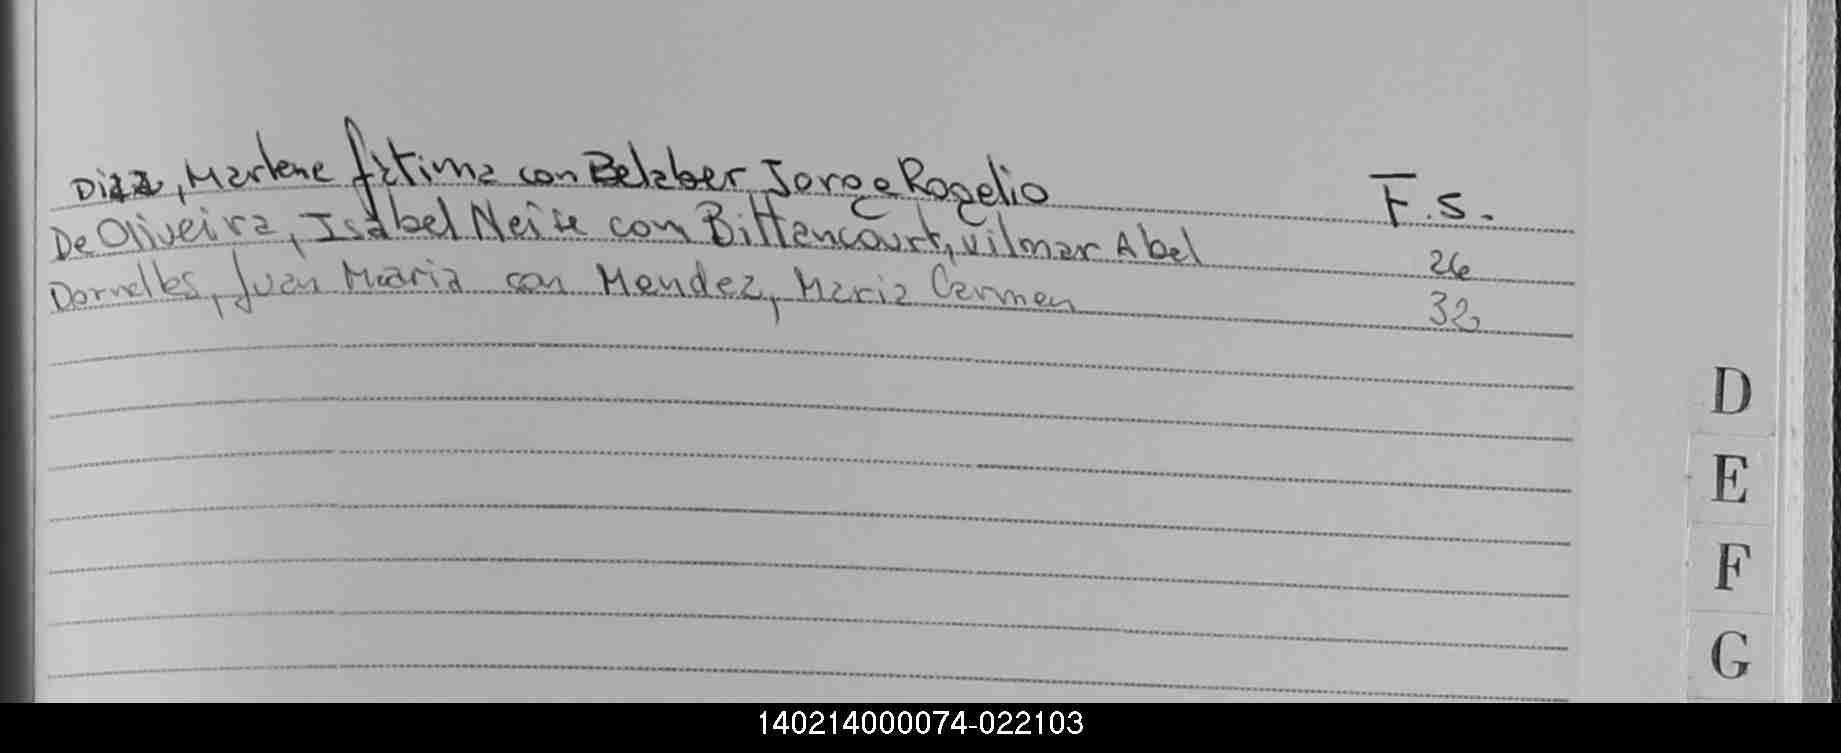 Diaz, Marlene fátima con Belaber Jorge Rogelio F.S.
De Oliveira, Isabel Neise con Bittencourt, Vilmar Abel 26
Dornelles, Juan Maria con Mendez, Maria Carmen 32
D
E
F
G
140214000074-022103